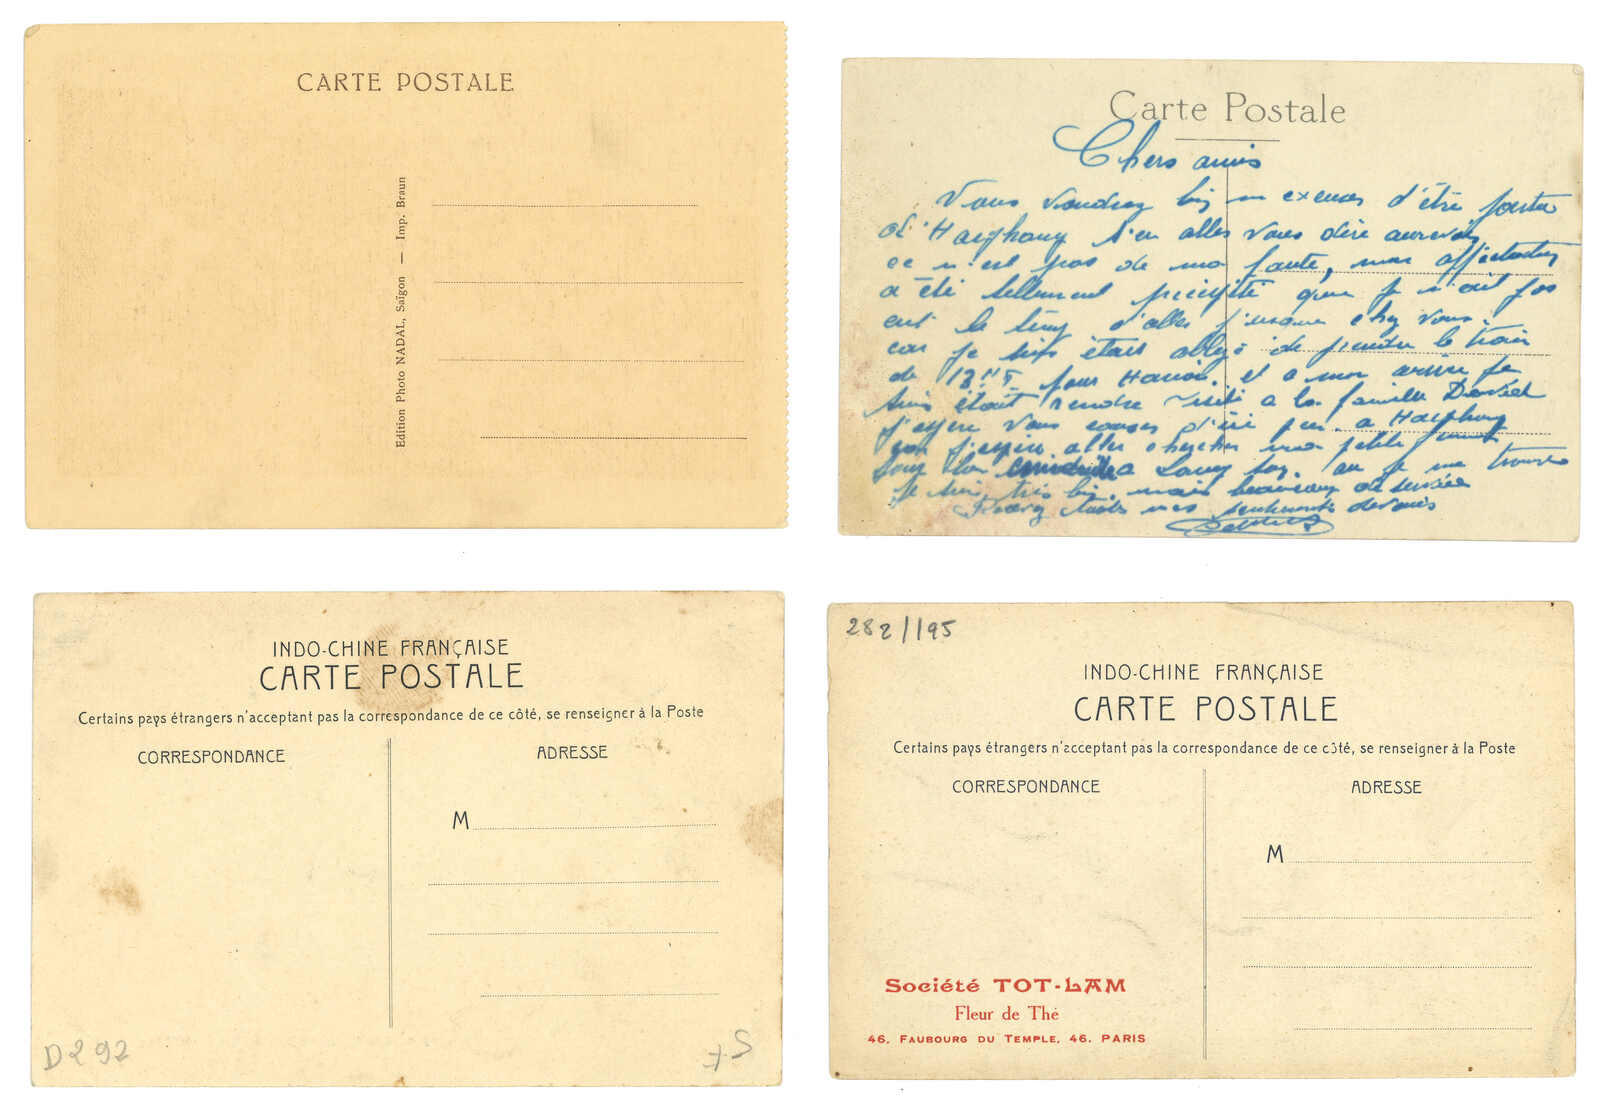 CARTE POSTALE
Edition Photo NADAL, Saïgon — Imp. Braun
Carte Postale
Chers amis
Vous voudrez bien excuser d'être
d'Haiphong vous dire aurevoir
ce n'est pas de ma faute, mon affectation
a été tellement que je n'ait pas
eut le temp d'aller jusque chez vous.
car je suis était obligé de prendre le train
de pour Hanoi. et a mon arrivé je
suis était rendre visite a la famille
j'espère vous a Haiphong
j'espère aller chercher ma petite
ou je me trouve
je suis très bien mais beaucoup de
mes sentiments
INDO-CHINE FRANÇAISE
CARTE POSTALE
Certains pays étrangers n'acceptant pas la correspondance de ce côté, se renseigner à la Poste
CORRESPONDANCE
ADRESSE
M
D292
282/195
INDO-CHINE FRANÇAISE
CARTE POSTALE
Certains pays étrangers n'acceptant pas la correspondance de ce côté, se renseigner à la Poste
CORRESPONDANCE
ADRESSE
M
Société TOT-LAM
Fleur de Thé
46, FAUBOURG DU TEMPLE, 46. PARIS